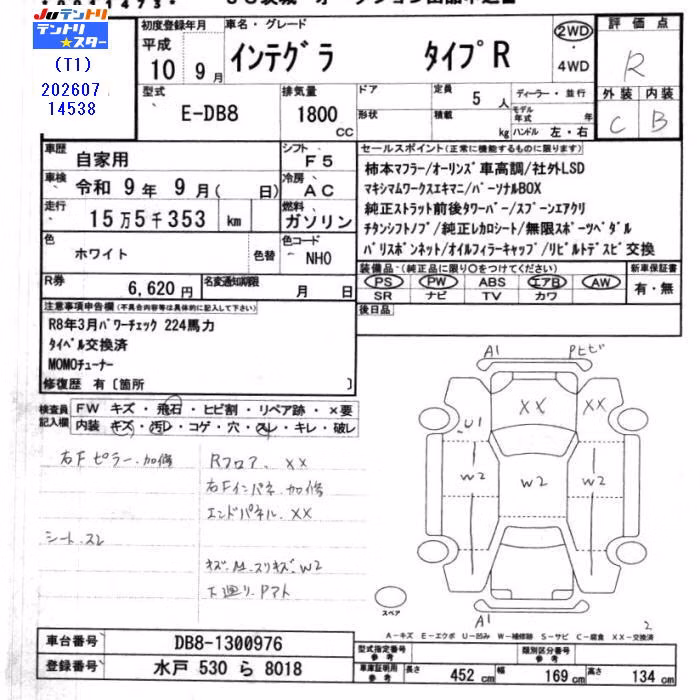 JUテントリ
テントリ★スター
(T1)
202607
14538
初度登録年月
平成
10年 9月
車名・グレード
インテグラ タイプR
2WD
4WD
評価点
R
型式
E-DB8
排気量
1800 CC
ドア
形状
定員 5人
積載 kg
ディーラー・並行
モデル年式 年
ハンドル 左・右
外装 内装
C B
車歴
自家用
シフト
F5
車検
令和 9年 9月 ( 日)
冷房
AC
走行
15万5千353 km
燃料
ガソリン
色
ホワイト 色替
色コード
NH0
R券
6,620円
名変通知期限
月 日
セールスポイント(正常に機能するものに限ります)
柿本マフラー/オーリンズ車高調/社外LSD
マキシムワークスエキマニ/パーソナルBOX
純正ストラット前後タワーバー/スプーンエアクリ
チタンシフトノブ/純正レカロシート/無限スポーツペダル
バリスボンネット/オイルフィラーキャップ/リビルトデスビ交換
装備品・(純正品に限り○をつけてください) 新車保証書
PS PW ABS エアB AW 有・無
SR ナビ TV カワ
後日品
注意事項申告欄(不具合内容等は具体的に記入して下さい)
R8年3月パワーチェック 224馬力
タイベル交換済
MOMOチューナー
修復歴 有〔箇所 〕
検査員記入欄
FW キズ・飛石・ヒビ割・リペア跡・×要
内装 キズ・汚レ・コゲ・穴・スレ・キレ・破レ
右Fピラー.加修
Rフロア.XX
右Fインパネ.加修
エンドパネル.XX
シート.スレ
下廻り.Pアト
A1
Pヒビ
XX
XX
U1
W2
W2
W2
A1
スペア
2
A-キズ E-エクボ U-凹み W-補修跡 S-サビ C-腐食 XX-交換済
車台番号
DB8-1300976
登録番号
水戸 530 ら 8018
型式指定番号
参考
類別区分番号
参考
車庫証明用
参考
長さ 452 cm 幅 169 cm 高さ 134 cm